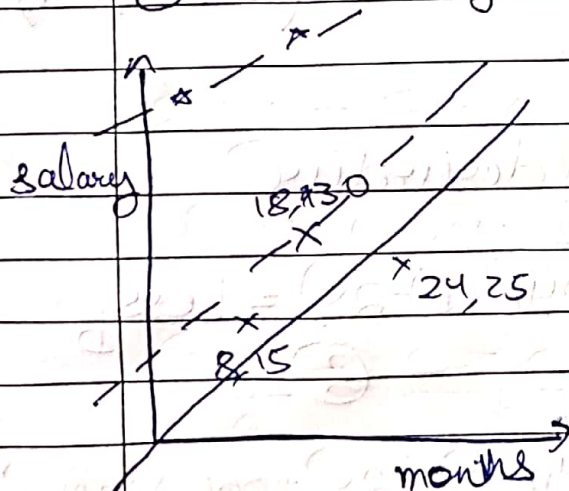 salary
18,13
24,25
8,15
months